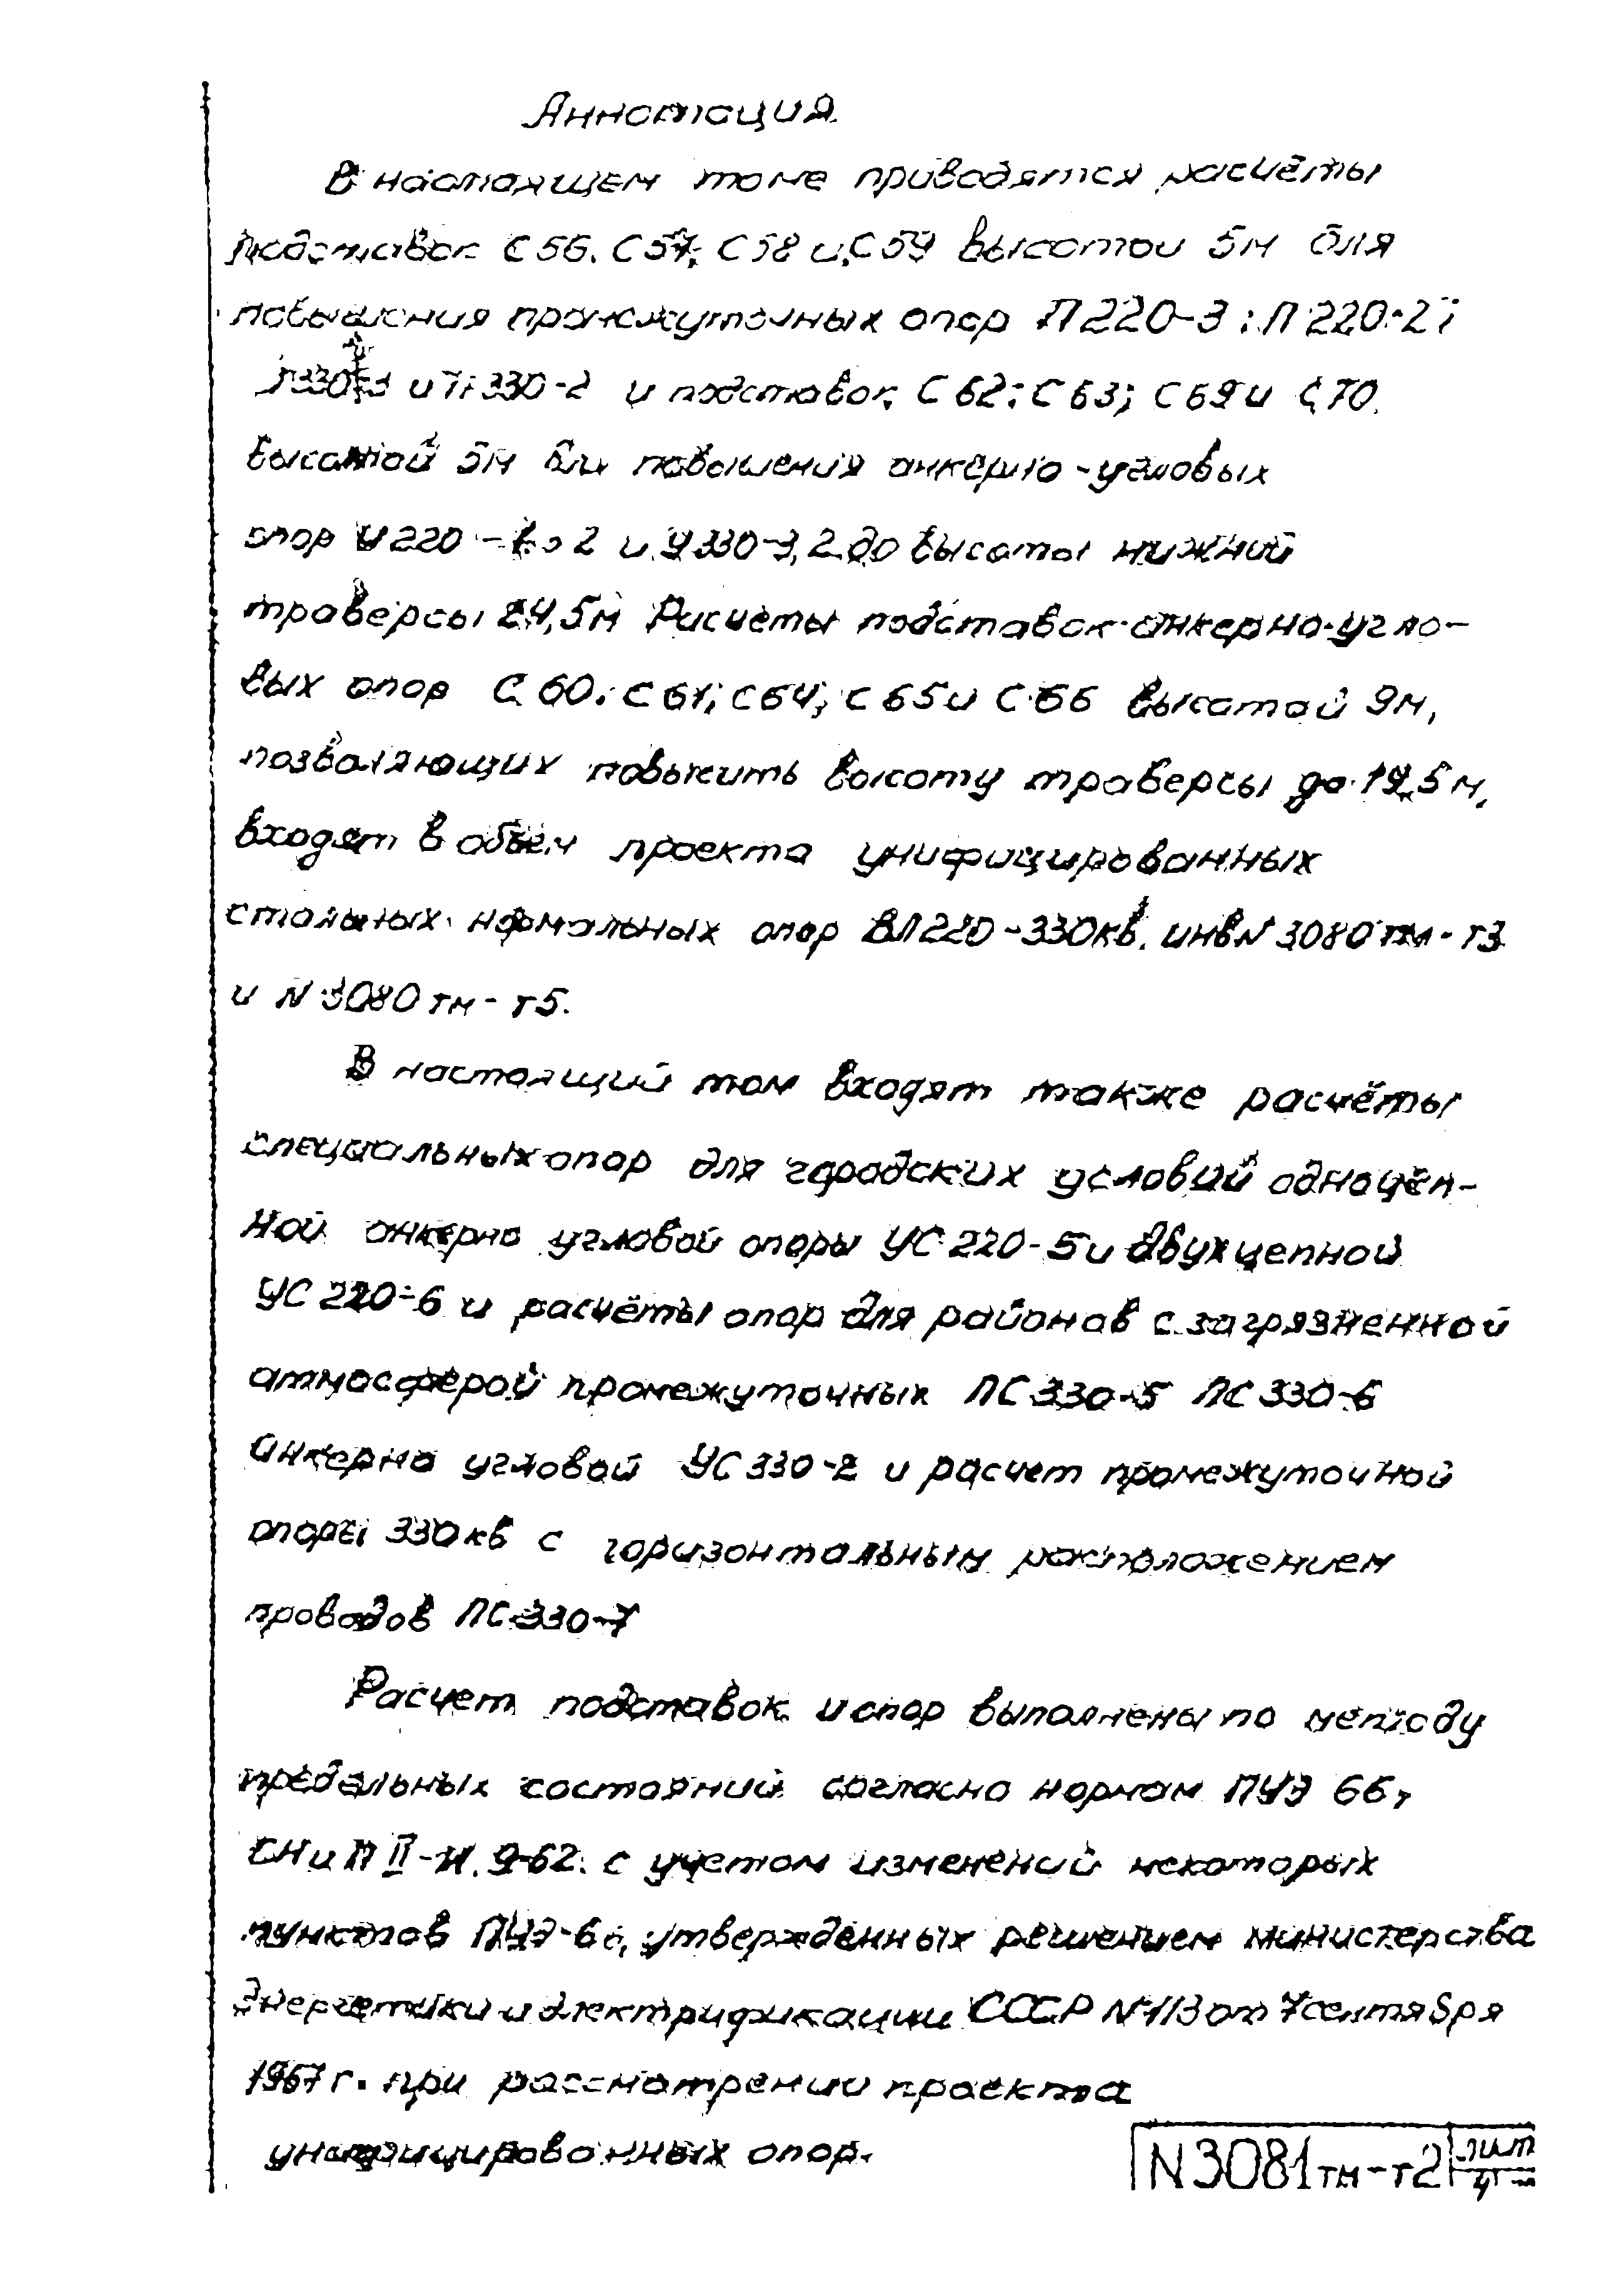 Аннотация
В настоящем томе приводятся расчёты
подставок С 56. С 57; С 58 и С 59 высотой 5м для
повышения промежуточных опор П 220-3; П 220-2;
П330-3 и П 330-2 и подставок С 62; С 63; С 69 и С 70
высотой 5м для повышения анкерно-угловых
опор У 220 - 2 и У 330-3, 2 до высоты нижней
траверсы 24,5м Расчеты подставок анкерно-угло-
вых опор С 60; С 61; С 64; С 65 и С 66 высотой 9м,
позволяющих повысить высоту траверсы до 19,5 м,
входят в объем проекта унифицированных
стальных нормальных опор ВЛ 220-330кв. инв N 3080 тм - т3
и N 3080 тм - т5.
В настоящий том входят также расчёты
специальных опор для городских условий одноцеп-
ной анкерно угловой опоры УС 220-5 и двухцепной
УС 220-6 и расчёты опор для районов с загрязненной
атмосферой промежуточных ПС 330-5 ПС 330-6
анкерно угловой УС 330-2 и расчет промежуточной
опоры 330 кв с горизонтальным расположением
проводов ПС 330-7
Расчет подставок и опор выполнены по методу
предельных состояний согласно нормам ПУЭ 66,
СНиП II-И. 9-62. с учетом изменений некоторых
пунктов ПУЭ-66, утвержденных решением министерства
Энергетики и электрификации СССР N 113 от 7 сентября
1967 г. при рассмотрении проекта
унифицированных опор.
N 3081 тм-т2 лит
4